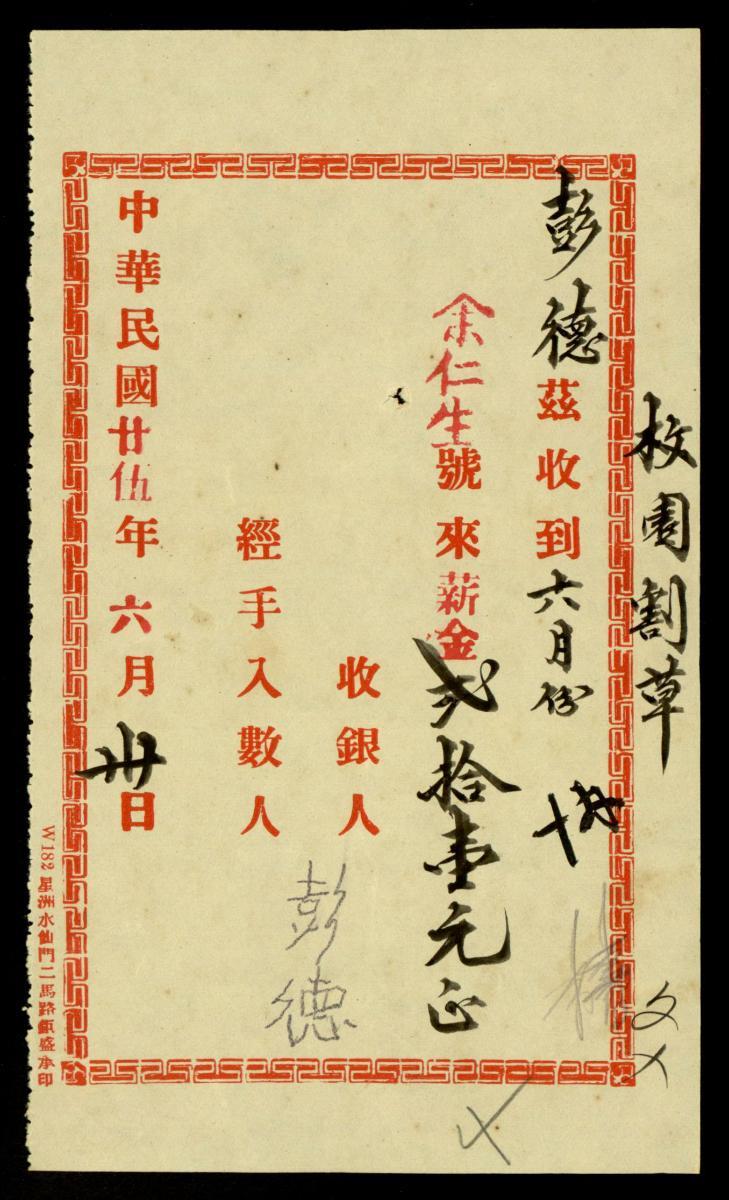 校園割草
彭德茲收到六月份
余仁生號來薪金弍拾壹元正
收銀人 彭德
經手入數人
中華民國廿伍年六月卅日
W182 星洲水仙門二馬路鎮盛承印